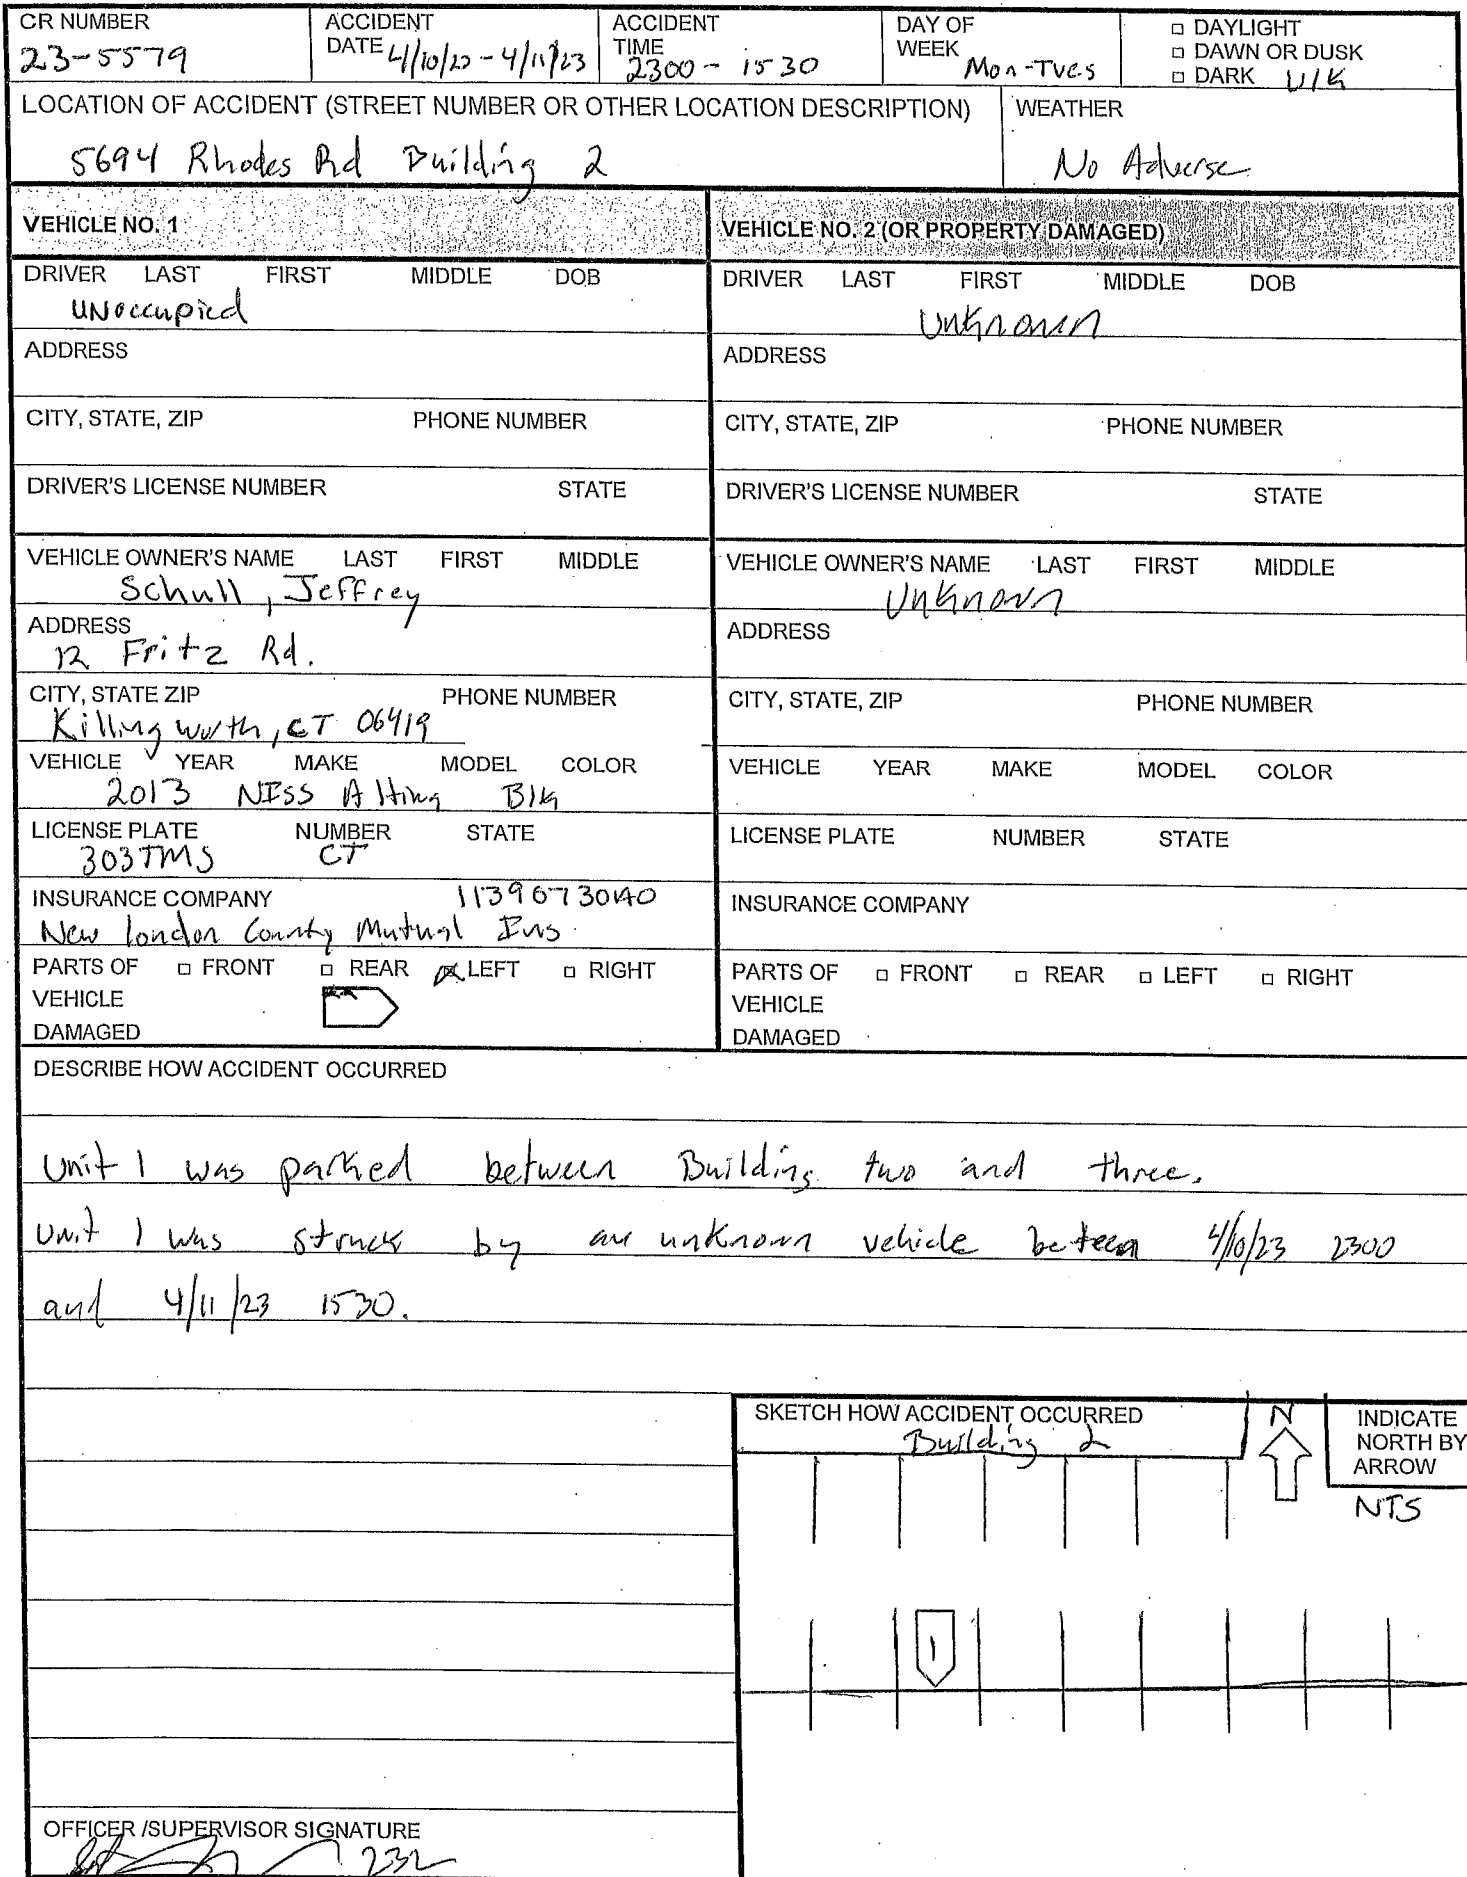 CR NUMBER ACCIDENT ACCIDENT DAY OF □ DAYLIGHT
23-5579 DATE 4/10/23 - 4/11/23 TIME 2300 - 1530 WEEK Mon-Tues □ DAWN OR DUSK
□ DARK U/K
LOCATION OF ACCIDENT (STREET NUMBER OR OTHER LOCATION DESCRIPTION) WEATHER
5694 Rhodes Rd Building 2 No Adverse
VEHICLE NO. 1
DRIVER LAST FIRST MIDDLE DOB
UNoccupied
ADDRESS
CITY, STATE, ZIP PHONE NUMBER
DRIVER'S LICENSE NUMBER STATE
VEHICLE OWNER'S NAME LAST FIRST MIDDLE
Schull, Jeffrey
ADDRESS
12 Fritz Rd.
CITY, STATE ZIP PHONE NUMBER
Killingworth, CT 06419
VEHICLE YEAR MAKE MODEL COLOR
2013 NISS Altima Blk
LICENSE PLATE NUMBER STATE
303TMS CT
INSURANCE COMPANY
New London County Mutual Ins
PARTS OF □ FRONT □ REAR ☒ LEFT □ RIGHT
VEHICLE
DAMAGED
VEHICLE NO. 2 (OR PROPERTY DAMAGED)
DRIVER LAST FIRST MIDDLE DOB
Unknown
ADDRESS
CITY, STATE, ZIP PHONE NUMBER
DRIVER'S LICENSE NUMBER STATE
VEHICLE OWNER'S NAME LAST FIRST MIDDLE
Unknown
ADDRESS
CITY, STATE, ZIP PHONE NUMBER
VEHICLE YEAR MAKE MODEL COLOR
LICENSE PLATE NUMBER STATE
INSURANCE COMPANY
PARTS OF □ FRONT □ REAR □ LEFT □ RIGHT
VEHICLE
DAMAGED
DESCRIBE HOW ACCIDENT OCCURRED
Unit 1 was parked between Building two and three.
Unit 1 was struck by an unknown vehicle beteen 4/10/23 2300
and 4/11/23 1530.
SKETCH HOW ACCIDENT OCCURRED N INDICATE
Building 2 NORTH BY
ARROW
NTS
1
OFFICER /SUPERVISOR SIGNATURE
232